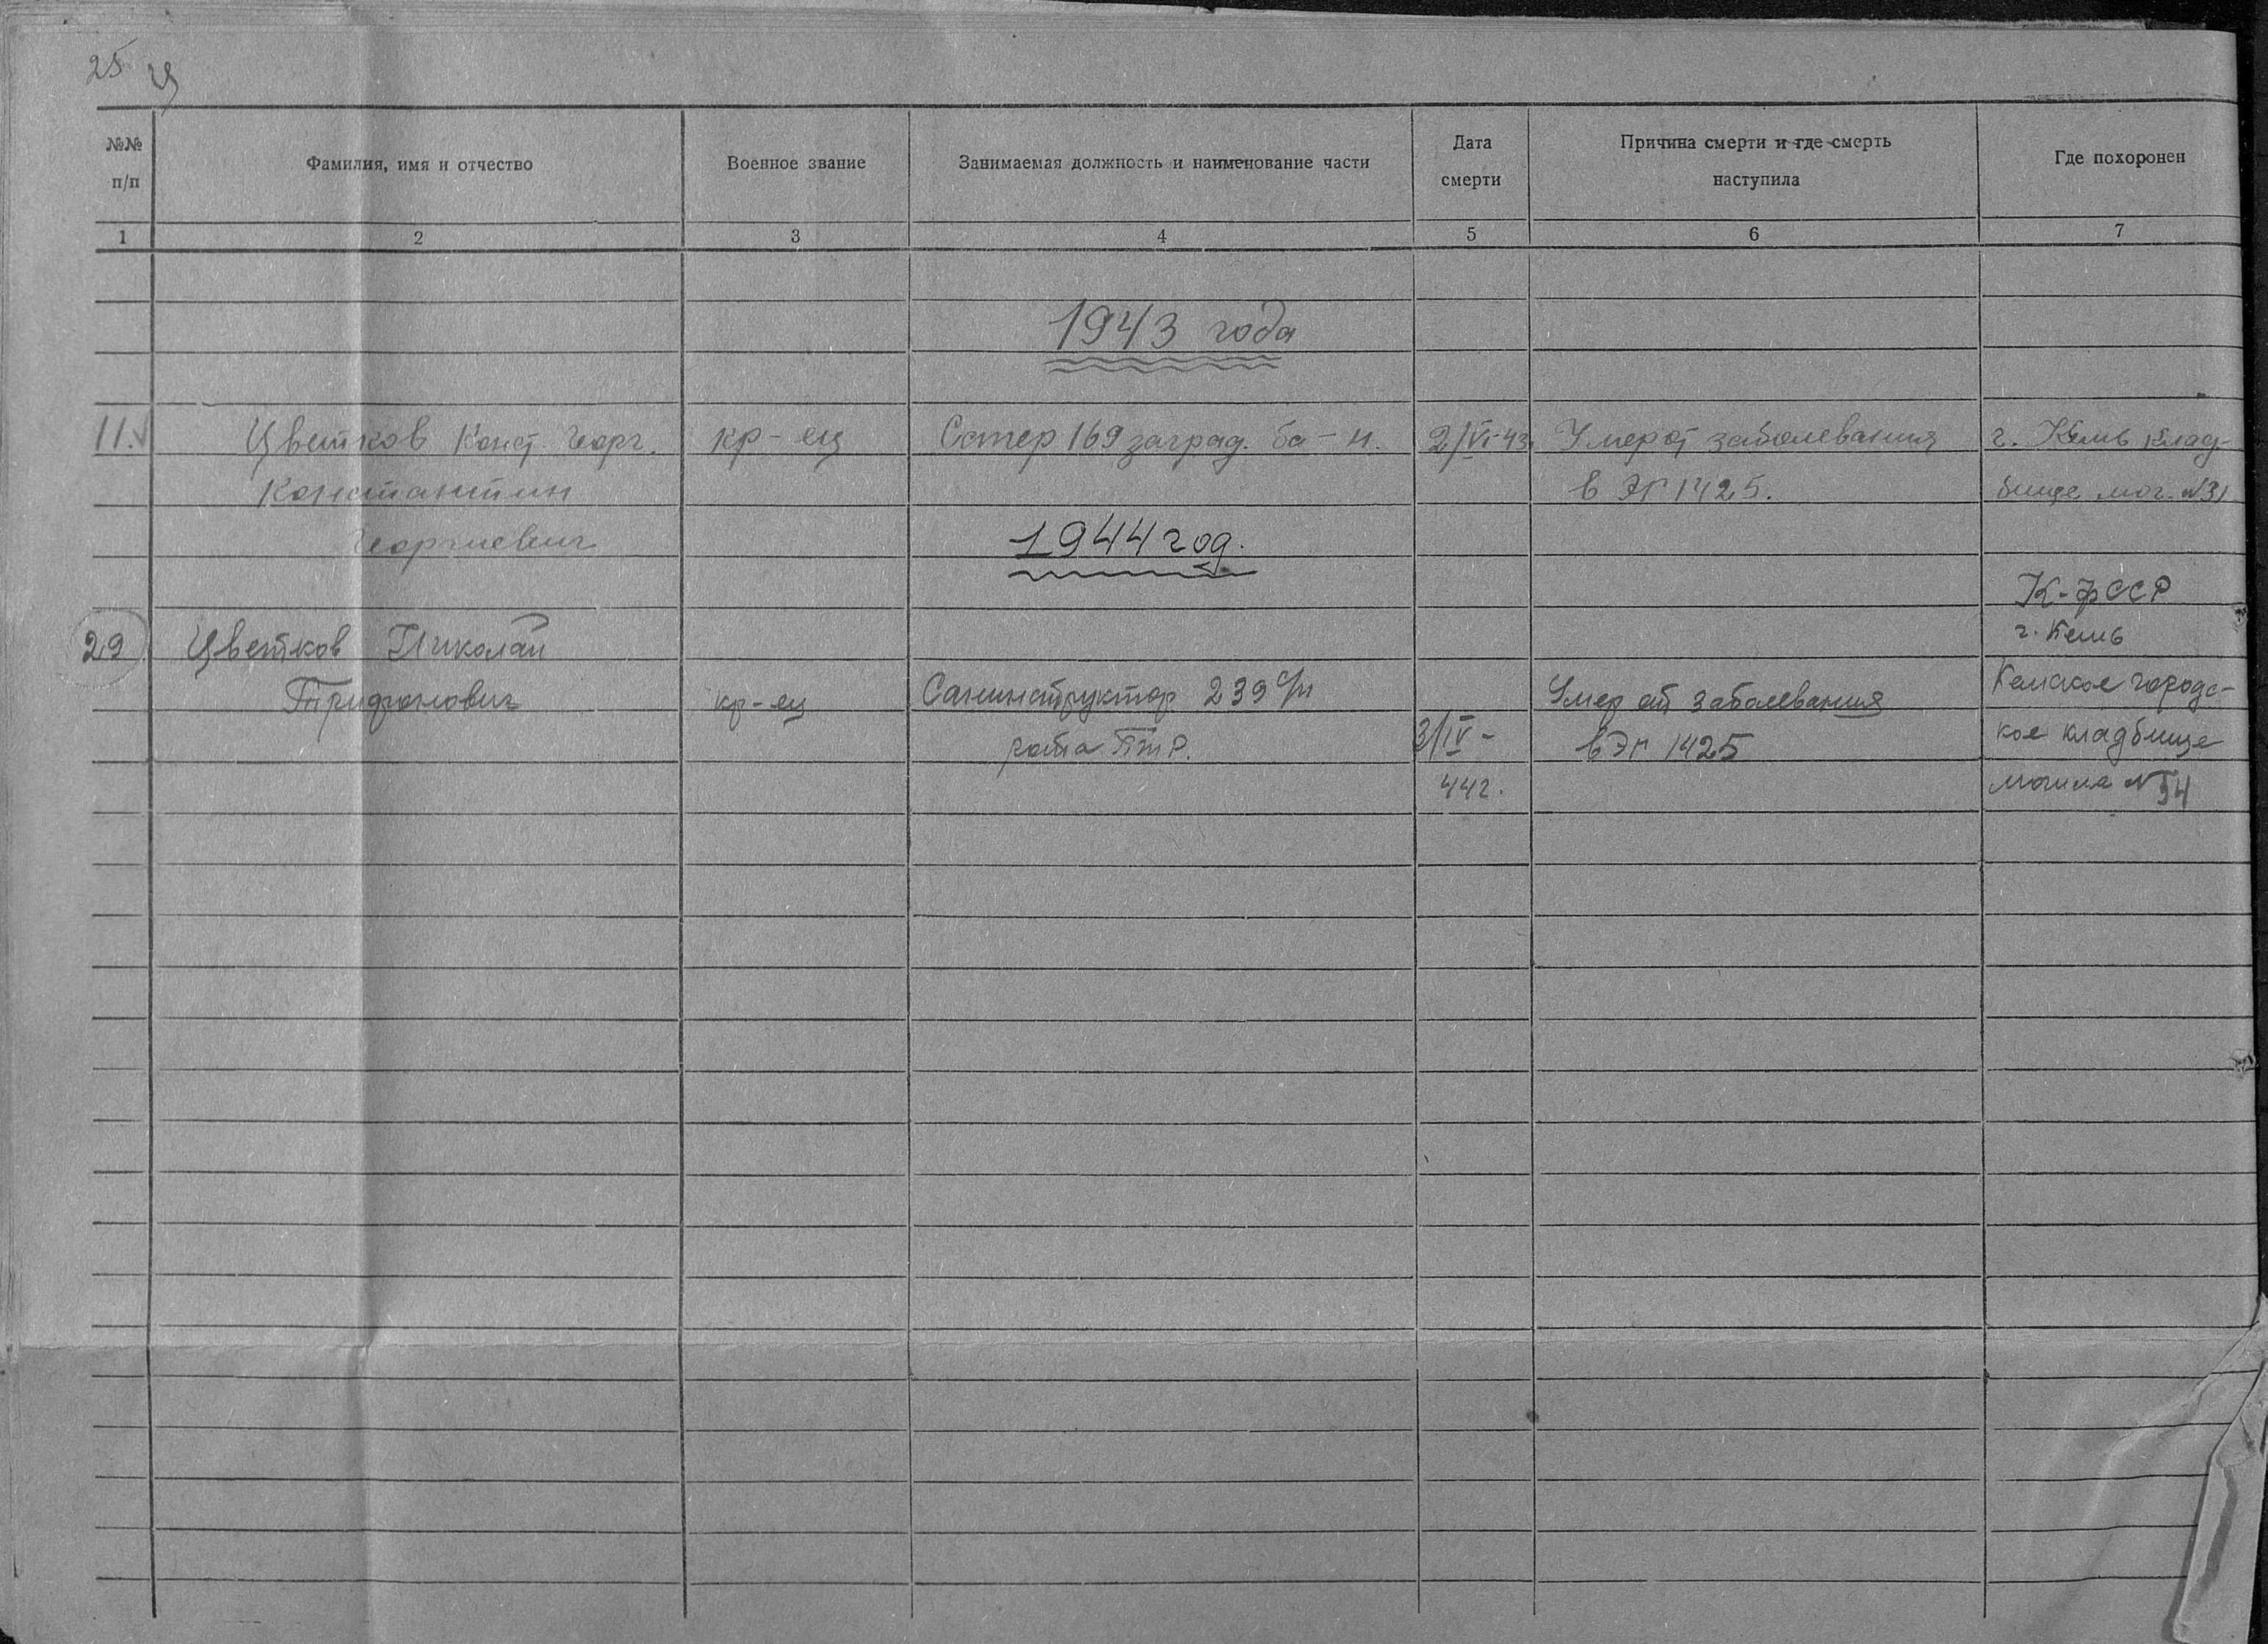 25
№№ п/п
Фамилия, имя и отчество
Военное звание
Занимаемая должность и наименование части
Дата смерти
Причина смерти и где смерть наступила
Где похоронен
1 2 3 4 5 6 7
1943 года
11. Цветков Конст. Георг. кр-ец Сапер 169 заград. ба-н. 2/VI-43 Умер от заболевания г. Кемь клад-
Константин в ЭГ 1425. бище мог. №31
Георгиевич
1944 год.
К-фССР
29 Цветков Николай г. Кемь
Трифонович кр-ец Санинструктор 239 с/п Умер от заболевания Кемское городс-
рота ПТР. 3/IV- в ЭГ 1425 кое кладбище
44г. могила №54